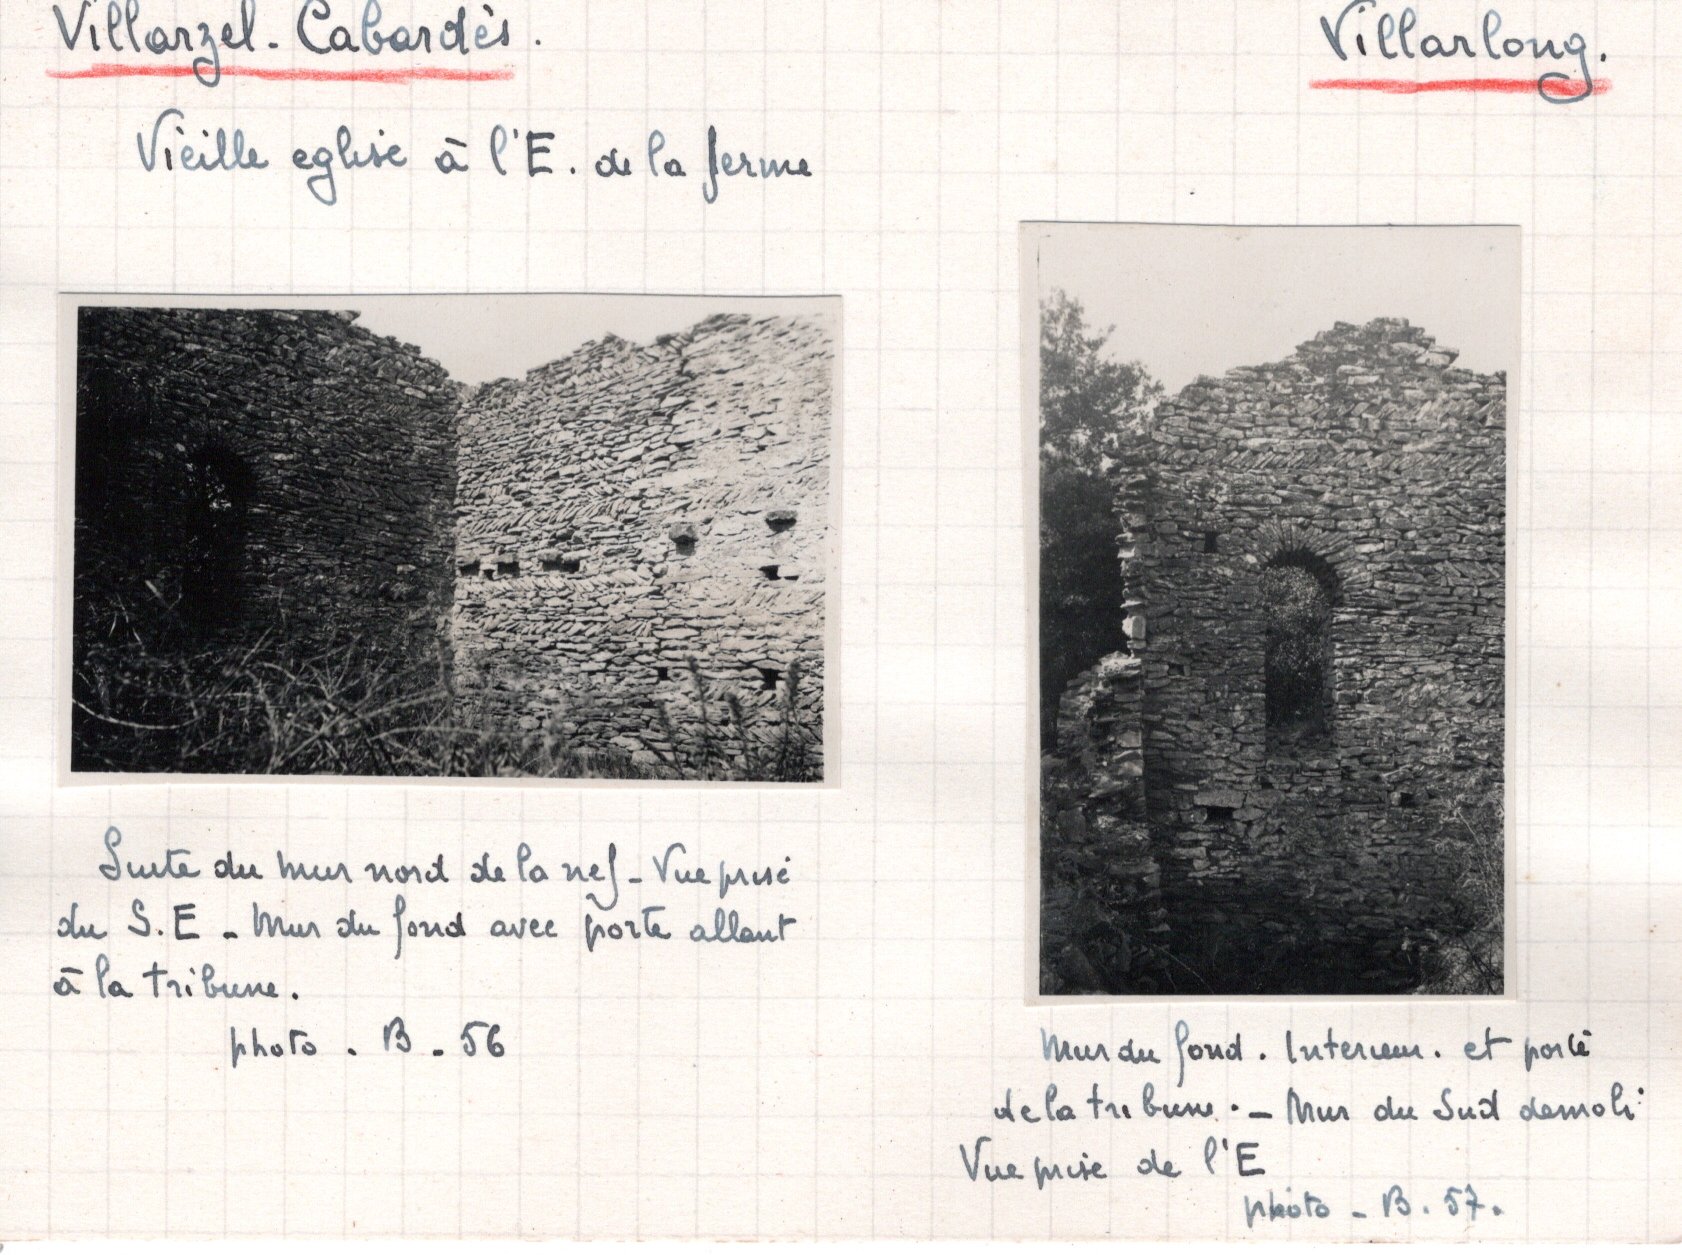 Villarzel-Cabardès.
Villarlong.
Vieille eglise à l'E. de la ferme
Suite du mur nord de la nef - Vue prise
du S.E - Mur du fond avec porte allant
à la tribune.
photo. B - 56
Mur du fond. Interieur. et porte
de la tribune. - Mur du Sud demoli
Vue prise de l'E
photo - B. 57.